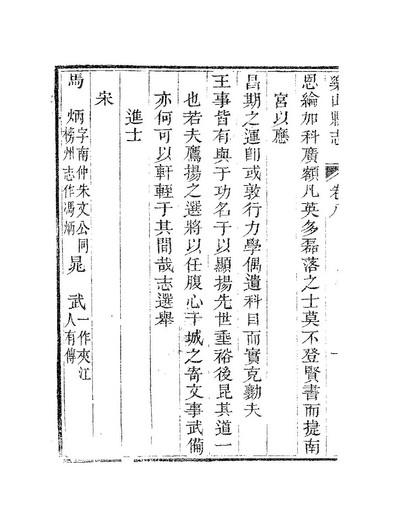 樂山縣志 卷八 一
恩綸加科廣額凡英多磊落之士莫不登賢書而捷南
宮以應
昌期之運即或敦行力學偶遺科目而實克勷夫
王事皆有與于功名于以顯揚先世垂裕後昆其道一
也若夫鷹揚之選將以任腹心干城之寄文事武備
亦何可以軒輊于其間哉志選舉
進士
宋
馮炳字南仲朱文公同榜州志作馮炳 晁武一作夾江人有傳